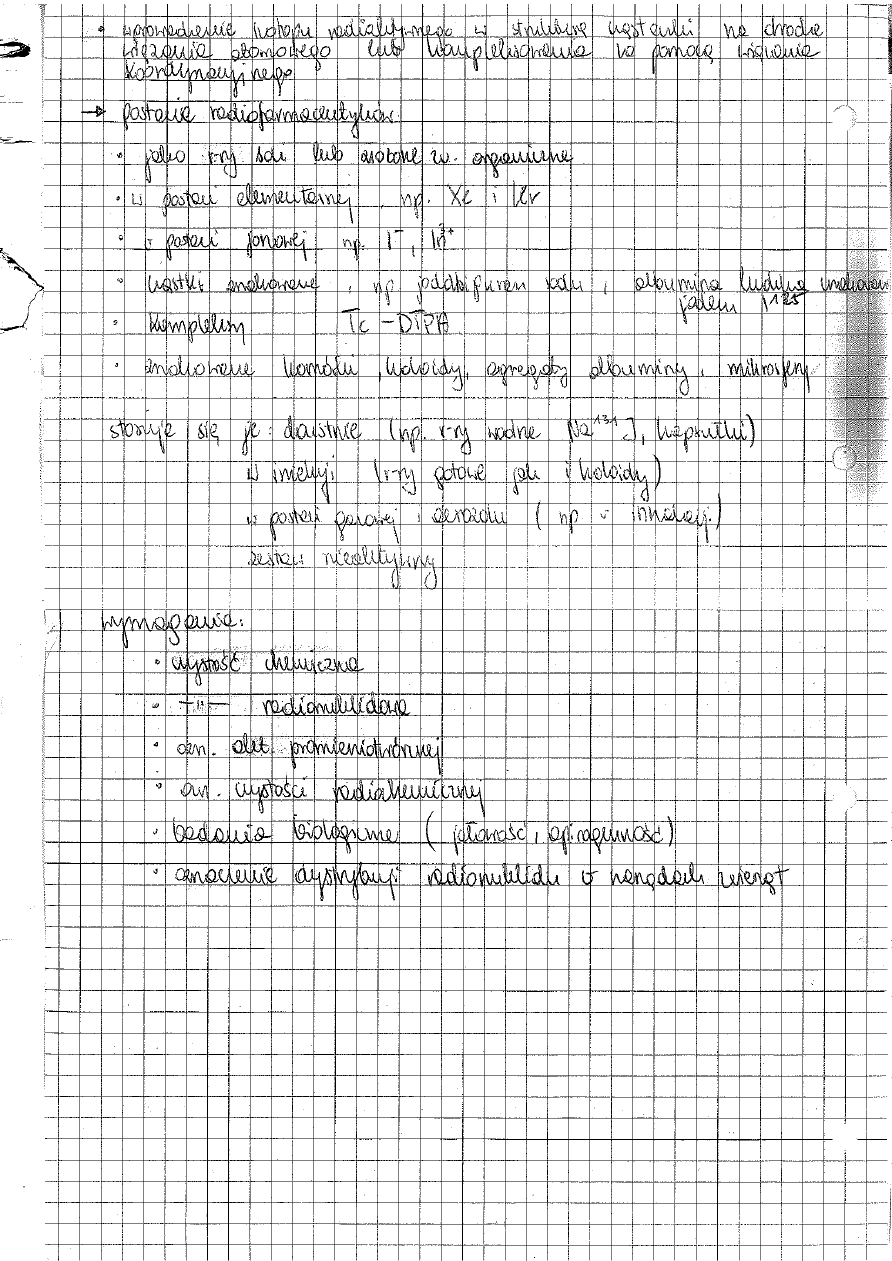 • wprowadzenie izotopu radioaktywnego w strukturę cząsteczki na drodze
wiązania atomowego lub kompleksowania za pomocą wiązania
koordynacyjnego
→ postacie radiofarmaceutyków
• jako r-ry soli lub zw. organiczne
• w postaci elementarnej, np. Xe i Kr
• w postaci jonowej np. I⁻, In³⁺
• cząstki znakowane, np sodu, albumina ludzka znakowana
jodem I¹²⁵
• kompleksy Tc - DTPA
• znakowane komórki, koloidy, agregaty albuminy, mikrosfery
stosuje się je: doustnie (np. r-ry wodne Na¹³¹J, kapsułki)
w iniekcji (r-ry gotowe jak i koloidy)
w postaci gazowej i aerozolu (np w inhalacji)
zestaw nieaktywny
wymagania:
• czystość chemiczna
• —"— radionuklidowa
• ozn. akt. promieniotwórczej
• ozn. czystości radiochemicznej
• badania biologiczne (jałowość, apirogenność)
• oznaczenie dystrybucji radionuklidu w narządach zwierząt